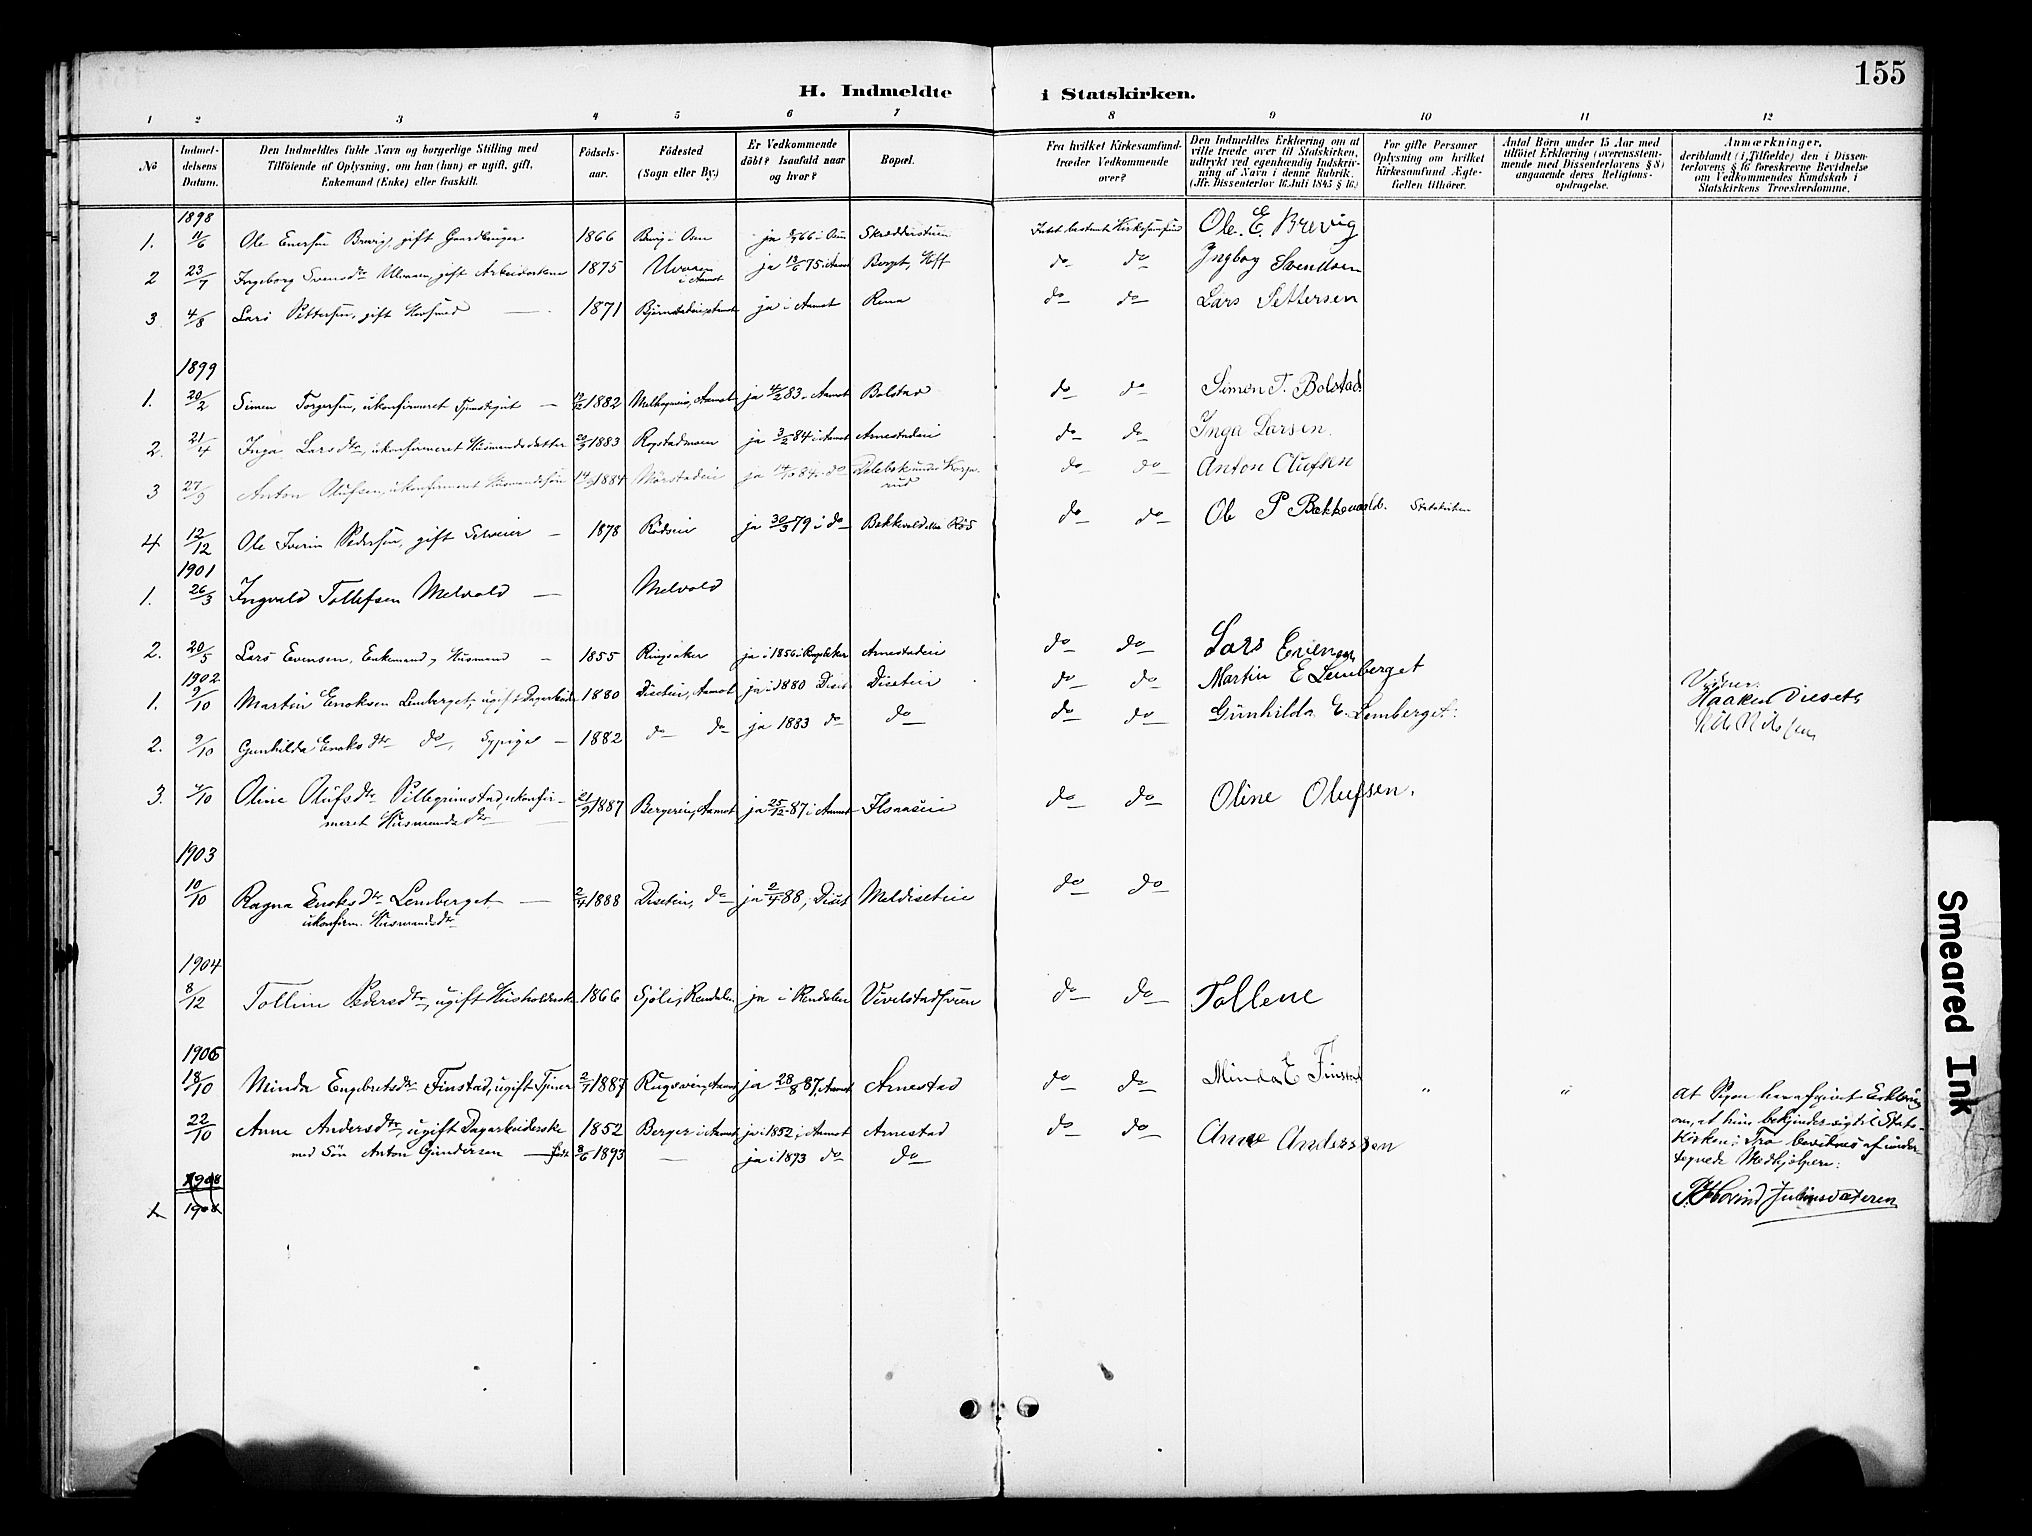 155
H. Indmeldte i Statskirken.
1 2 3 4 5 6 7 8 9 10 11 12
No
Indmel-
delsens
Datum.
Den Indmeldtes fulde Navn og borgerlige Stilling med
Tilföiende af Oplysning, om han (hun) er ugift, gift,
Enkemand (Enke) eller fraskilt.
Födsels-
aar.
Födested
(Sogn eller By.)
Er Vedkommende
döbt? Isaafald naar
og hvor?
Bopæl.
Fra hvilket Kirkesamfund
træder Vedkommende
over?
Den Indmeldtes Erklæring om at
ville træde over til Statskirken,
udtrykt ved egenhændig Indskriv-
ning af Navn i denne Rubrik.
(Jfr. Dissenterlov 16. Juli 1845 § 16.)
For gifte Personer
Oplysning om hvilket
Kirkesamfund Ægte-
fællen tilhörer.
Antal Börn under 15 Aar med
tilföiet Erklæring (overensstem-
mende med Dissenterlovens § 8)
angaaende deres Religions-
opdragelse.
Anmærkninger,
deriblandt (i Tilfælde) den i Dissen-
terlovens § 16 foreskrevne Bevidnelse
om Vedkommendes Kundskab i
Statskirkens Troeslærdomme.
1898
1. 11/6 Ole Enersen Brevig, gift Gaardbruger 1866 Brevig i Osen ja 66 i Osen Skrædderstuen Intet bestemt Kirkesamfund Ole. E. Brevig
2 23/7 Ingeborg Svensdtr Ulvaaen, gift Arbeiderkone 1875 Ulvaaen i Aamot ja 13/6 75 i Aamot Berget, Hff do do Ingbog Svendsen
3 4/8 Lars Pettersen, gift Hovsmed 1871 ja i Aamot Rena do do Lars Pettersen
1899
1. 20/2 Simen Torgersen, ukonfirmeret Tjenestegut 1882 Aamot ja 4/2 83 Aamot Bolstad do do Simen T. Bolstad
2. 21/4 Inga Larsdtr, ukonfirmeret Husmandsdatter 1883 Rogstadmoen ja 3/2 84 i Aamot Arnestadeie do do Inga Larsen.
3 27/9 Anton Olufsen, ukonfirmeret Husmandssön 1884 Mörstadeie ja 84 do do do Anton Olufsen
4 12/12 Ole Iverin Pedersen, gift Selveier 1878 Rödseie ja 30/3 79 i do Bekkevold do do Ole P Bekkevold. Statskirken
1901
1. 26/3 Ingvald Tollefsen Melvold Melvold
2. 20/5 Lars Evensen, Enkemand, Husmand 1855 Ringsaker ja i 1856 i Ringsaker Arnestadeie do do Lars Evensen
1902
1. 9/10 Martin Enoksen Lemberget, ugift Dagarbeider 1880 Diseteie, Aamot ja i 1880 Diset Diseteie do do Martin E Lemberget
2. 9/10 Gunhilda Enoksdtr do, Sypige 1882 do do ja 1883 do do do do Gunhilda E. Lemberget.
Vidner:
Haaken Diesets
Nils Nilssen
3. 9/10 Oline Olufsdtr Pillegrimstad, ukonfir-
meret Husmandsdtr 1887 Bergereie, Aamot ja 25/12 87 i Aamot Ilsaaseie do do Oline Olufsen.
1903
10/10 Ragna Enoksdtr Lemberget 2/4 1888 Diseteie, do ja 2/4 88, Diset Meldiseteie do do
ukonfirm. Husmandsdtr
1904
8/12 Tolline Pedersdtr, ugift Husholderske 1866 Sjöli, Rendalen ja i Rendalen do do Tollene
1905
18/10 Minda Engebretsdtr Finstad, ugift Tjener 2/7 1887 Aamot ja 28/8 87, Aamot Arnestad do do Minda E Finstad " "
22/10 Anne Andersdtr, ugift Dagarbeiderske 1852 Berger i Aamot ja i 1852, Aamot Arnestad do do Anne Anderssen
med Sön Anton Gundersen födt 3/6 1893 ja i 1893 do do
At Pigen har afgivet Erklæring
om, at hun bekjender sig til Stats-
kirkens Tro bevidnes af under-
tegnede Medhjælpere:
P. Hovind Julius Sæteren
1908
1 1908
Smeared Ink